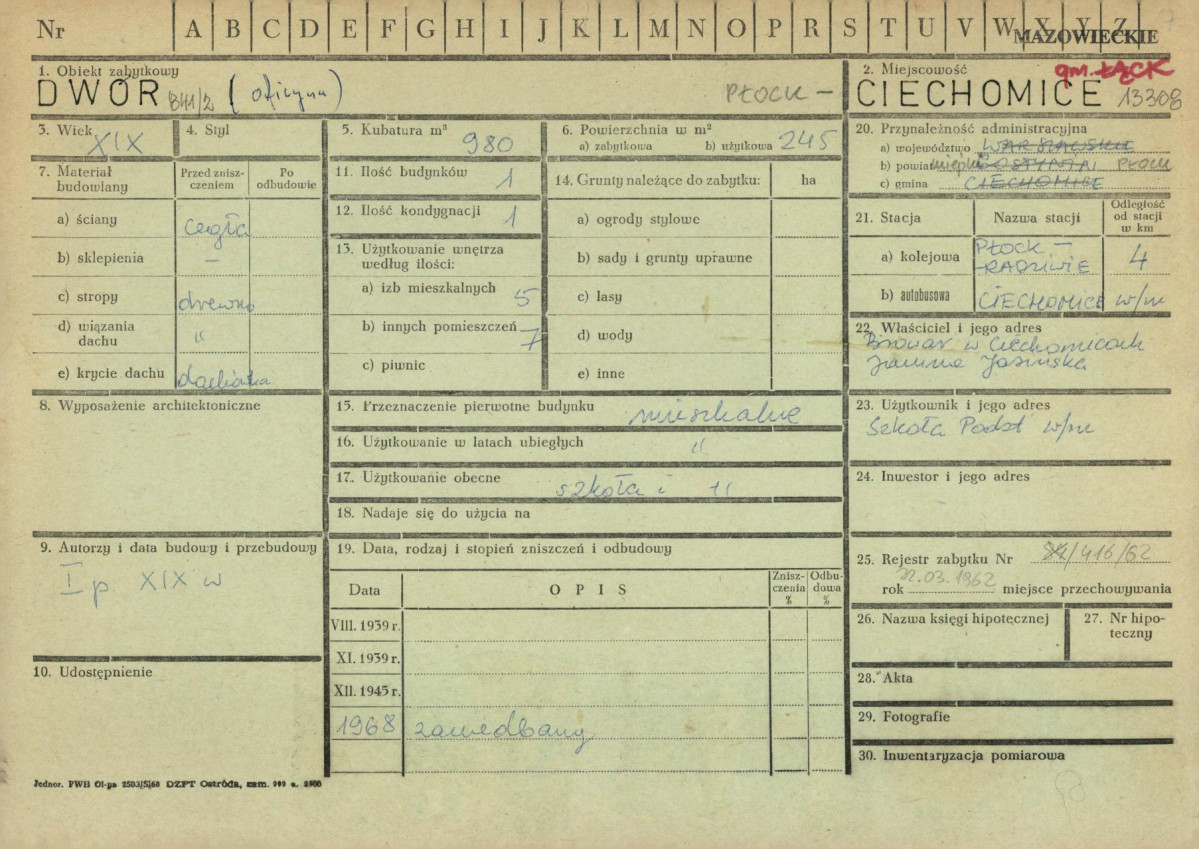 Nr A B C D E F G H I J K L M N O P R S T U V W X Y Z
MAZOWIECKIE
1. Obiekt zabytkowy
DWÓR 841/2 (oficyna) PŁOCK –
2. Miejscowość gm. ŁĄCK
CIECHOMICE 13308
3. Wiek XIX
4. Styl
5. Kubatura m³ 980
6. Powierzchnia w m²
a) zabytkowa b) użytkowa 245
7. Materiał budowlany
Przed zniszczeniem
Po odbudowie
a) ściany cegła
b) sklepienia –
c) stropy drewno
d) wiązania dachu "
e) krycie dachu dachówka
8. Wyposażenie architektoniczne
9. Autorzy i data budowy i przebudowy
I p XIX w
10. Udostępnienie
11. Ilość budynków 1
12. Ilość kondygnacji 1
13. Użytkowanie wnętrza według ilości:
a) izb mieszkalnych 5
b) innych pomieszczeń 7
c) piwnic
14. Grunty należące do zabytku: ha
a) ogrody stylowe
b) sady i grunty uprawne
c) lasy
d) wody
e) inne
15. Przeznaczenie pierwotne budynku mieszkalne
16. Użytkowanie w latach ubiegłych "
17. Użytkowanie obecne szkoła i "
18. Nadaje się do użycia na
19. Data, rodzaj i stopień zniszczeń i odbudowy
Data OPIS Zniszczenia % Odbudowa %
VIII. 1939 r.
XI. 1939 r.
XII. 1945 r.
1968 zaniedbany
20. Przynależność administracyjna
a) województwo WARSZAWSKIE
b) powiat miejski GOSTYNIN PŁOCK
c) gmina CIECHOMICE
21. Stacja Nazwa stacji Odległość od stacji w km
a) kolejowa PŁOCK – RADZIWIE 4
b) autobusowa CIECHOMICE w/m
22. Właściciel i jego adres
Browar w Ciechomicach
Janina Jasińska
23. Użytkownik i jego adres
Szkoła Podst w/m
24. Inwestor i jego adres
25. Rejestr zabytku Nr /416/62
rok 22.03.1962 miejsce przechowywania
26. Nazwa księgi hipotecznej
27. Nr hipoteczny
28. Akta
29. Fotografie
30. Inwentaryzacja pomiarowa
Jednor. PWH Ol-ga 2503/S/68 DZPT Ostróda, zam.